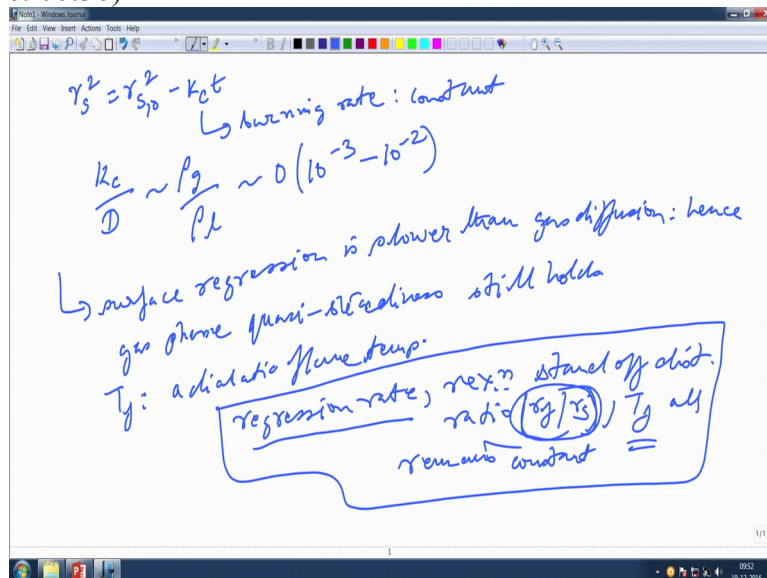 Note1 - Windows Journal
File Edit View Insert Actions Tools Help
r_s^2 = r_{s,0}^2 - K_c t
↳ burning rate : constant
K_c/D ~ ρ_g/ρ_l ~ O(10^{-3} - 10^{-2})
↳ surface regression is slower than gas diffusion : hence
gas phase quasi-steadiness still holds
T_f : adiabatic flame temp.
regression rate, rexn stand off dist.
ratio (r_f/r_s), T_f all
remains constant
1/1
1
09:52